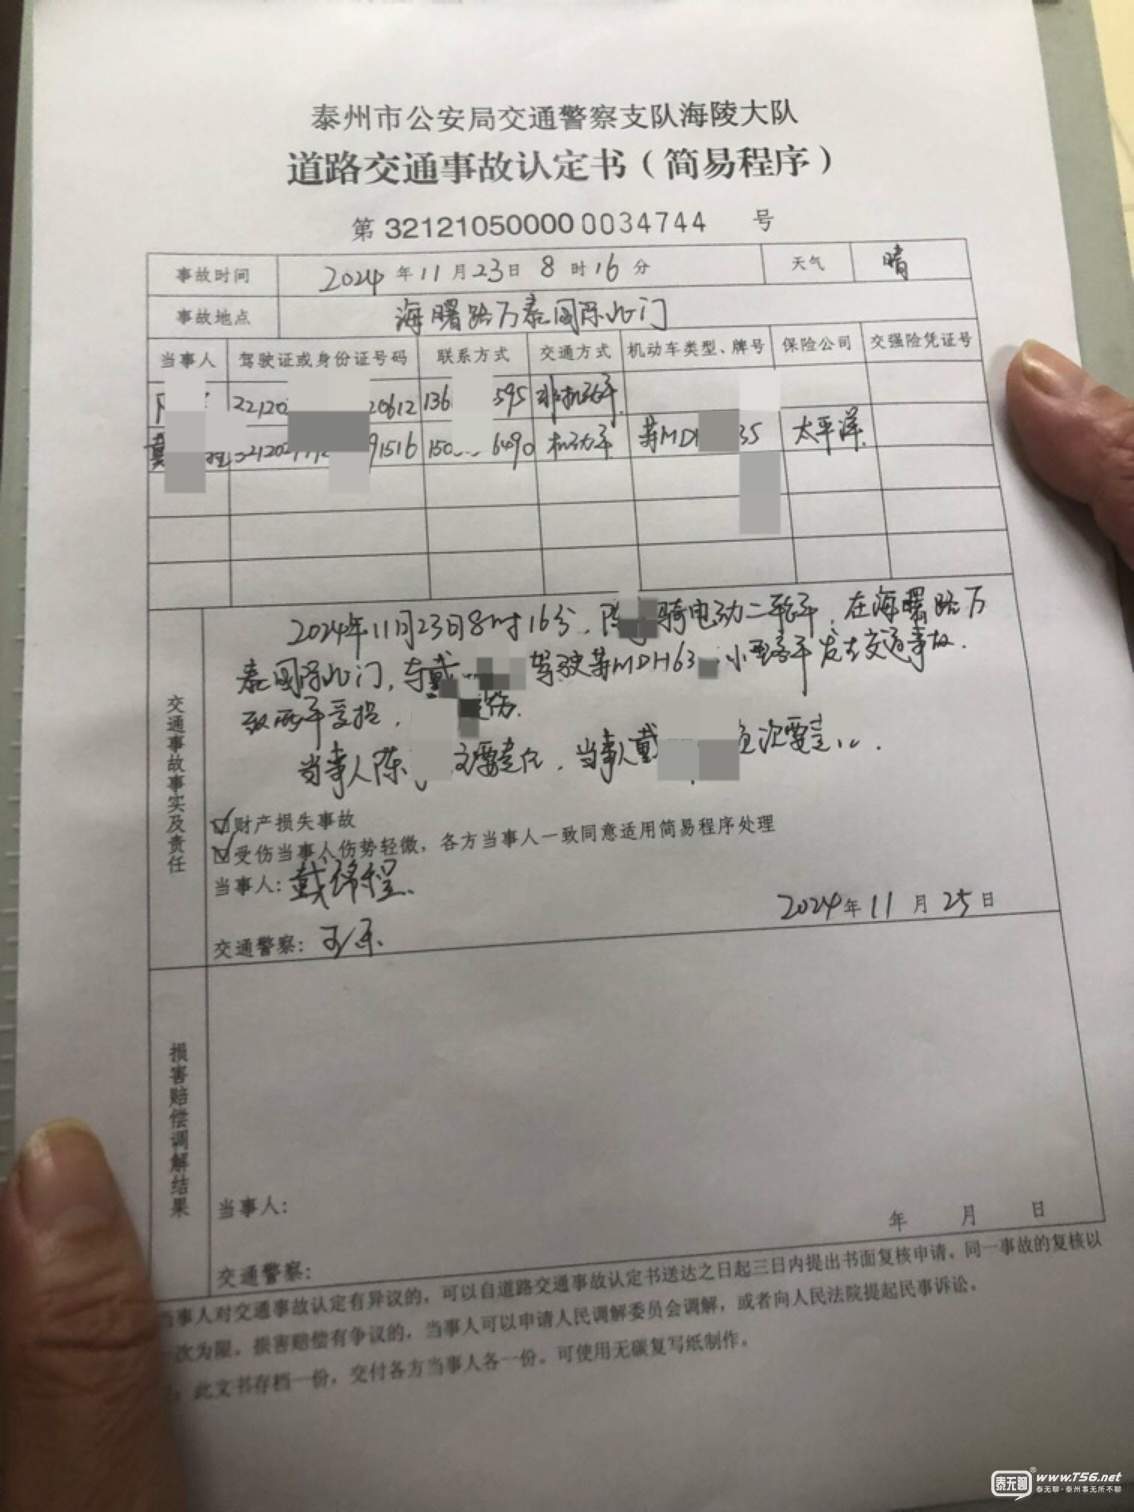 泰州市公安局交通警察支队海陵大队
道路交通事故认定书（简易程序）
第 321210500000034744 号
事故时间 2024 年 11 月 23 日 8 时 16 分 天气 晴
事故地点 海曙路万泰国际北门
当事人 驾驶证或身份证号码 联系方式 交通方式 机动车类型、牌号 保险公司 交强险凭证号
136 595 非机动车
1516 150 6490 机动车 苏MD 35 太平洋
交通事故事实及责任
2024年11月23日8时16分，陈 骑电动二轮车，在海曙路万
泰国际北门，与戴 驾驶苏MDH63 小型客车发生交通事故.
致两车受损， 伤.
当事人陈 主要责任，当事人戴 负次要责任.
☑财产损失事故
☑受伤当事人伤势轻微，各方当事人一致同意适用简易程序处理
当事人：戴锦程
2024 年 11 月 25 日
交通警察：
损害赔偿调解结果
当事人：
年 月 日
交通警察：
当事人对交通事故认定有异议的，可以自道路交通事故认定书送达之日起三日内提出书面复核申请。同一事故的复核以
一次为限。损害赔偿有争议的，当事人可以申请人民调解委员会调解，或者向人民法院提起民事诉讼。
此文书存档一份，交付各方当事人各一份。可使用无碳复写纸制作。
泰无聊 www.T56.net
泰无聊·泰州事无所不聊